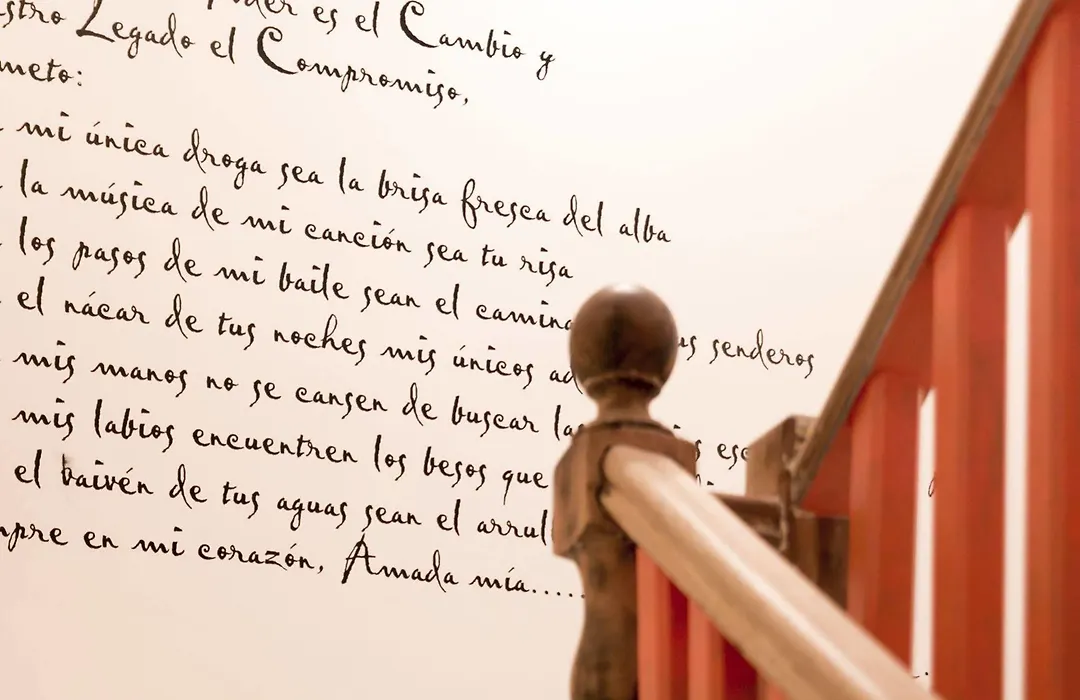 es el Cambio y
Legado el Compromiso,
mi única droga sea la brisa fresca del alba
la música de mi canción sea tu risa
los pasos de mi baile sean el camino senderos
el nácar de tus noches mis únicos
mis manos no se cansen de buscar
mis labios encuentren los besos que
el baivén de tus aguas sean el
en mi corazón, Amada mía.....